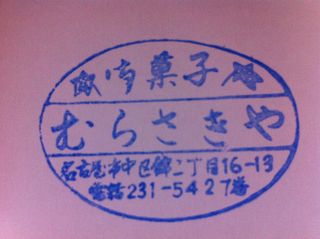 御菓子
むらさきや
名古屋市中区錦二丁目16-13
電話231-5427番